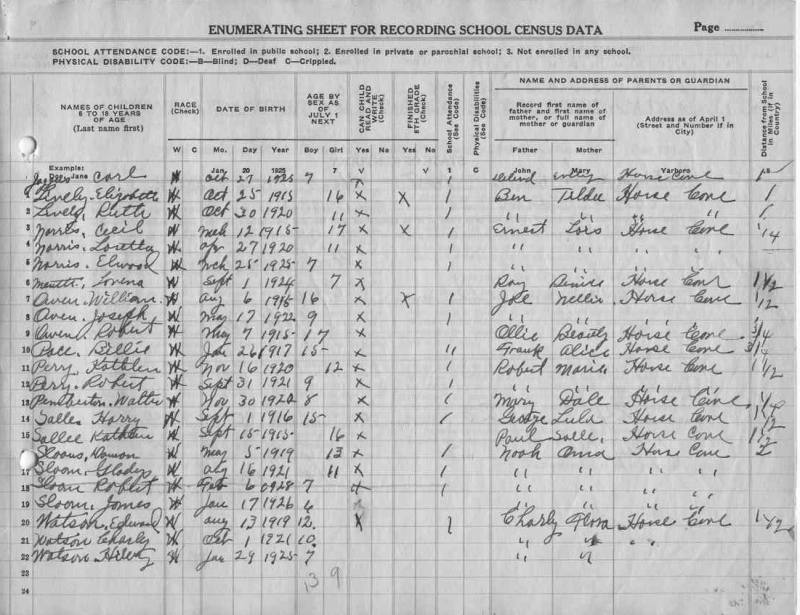 ENUMERATING SHEET FOR RECORDING SCHOOL CENSUS DATA
Page
SCHOOL ATTENDANCE CODE:—1. Enrolled in public school; 2. Enrolled in private or parochial school; 3. Not enrolled in any school.
PHYSICAL DISABILITY CODE:—B—Blind; D—Deaf C—Crippled.
NAMES OF CHILDREN 6 TO 18 YEARS OF AGE (Last name first)
RACE (Check)
W C
DATE OF BIRTH
Mo. Day Year
AGE BY SEX AS OF JULY 1 NEXT
Boy Girl
CAN CHILD READ AND WRITE (Check)
Yes No
FINISHED 8TH GRADE (Check)
Yes No
School Attendance (See Code)
Physical Disabilities (See Code)
NAME AND ADDRESS OF PARENTS OR GUARDIAN
Record first name of father and first name of mother, or full name of mother or guardian
Father Mother
Address as of April 1 (Street and Number if in City)
Distance from School in Miles (if in Country)
Example:
Doe, Jane Jan. 20 1925 7 V V 1 C John Mary Yarboro
Carl W Oct 27 1925 7 1 Horse Cove
1 Lively. Elizabeth W Oct 25 1915 16 X X 1 Ben Tildie Horse Cove 1
2 Ruth W Oct 30 1920 11 X 1 " " " "
3 Norris. Cecil W Mch 12 1915 17 X X 1 Ernest Lois Horse Cove 1/4
4 Norris. Loretta W Apr 27 1920 11 X 1 " " " "
5 Norris. Elwood W Mch 25 1925 7 1
6 Lorena W Sept 1 1924 7 X Roy Horse Cove 1 1/2
7 Owen. William W Aug 6 1915 16 X X 1 Joe Nellie Horse Cove 1/2
8 Owen. Joseph W May 17 1922 9 X 1 " " " "
9 Owen Robert W May 7 1915 17 X Ollie Horse Cove 3/4
10 Billie W Jan 26 1917 15 X 11 Frank Alice Horse Cove 3/4
11 Pery. Kathleen W Nov 16 1920 12 X 1 Robert Maria Horse Cove 1 1/2
12 Pery. Robert W Sept 31 1921 9 X 1 " " "
13 Pemberton. Walter W Nov 30 8 X 1 Mary Dale Horse Cove
14 Salles Harry W Sept 1 1916 15 X 1 George Lula Horse Cove
15 Sallee Kathleen W Sept 15 1915 16 X Paul Horse Cove 1 1/2
W May 5 1919 13 X 1 Noah Horse Cove
17 Sloan. Gladys W Aug 16 1921 11 X 1 " " " "
18 Sloan Robert W 6 7 X 1 " " " "
19 Sloan. James W Jan 17 1926 6 " " " "
20 Watson. Edward W Aug 13 1919 12 X 1 Charly Flora Horse Cove 1 1/2
21 Watson Charly W Oct 1 1921 10 " " " "
22 Watson W Jan 29 1925 7 " "
23
24 13 9